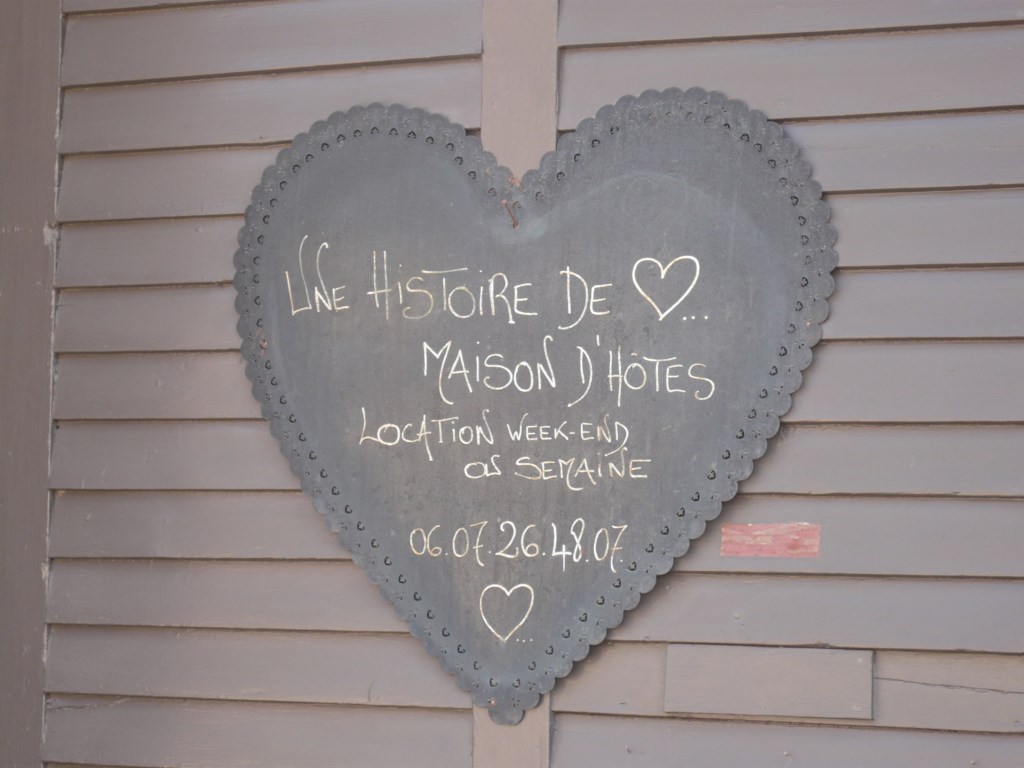 Une Histoire de ♡...
Maison d'Hôtes
Location week-end
ou semaine
06.07.26.48.07.
♡...